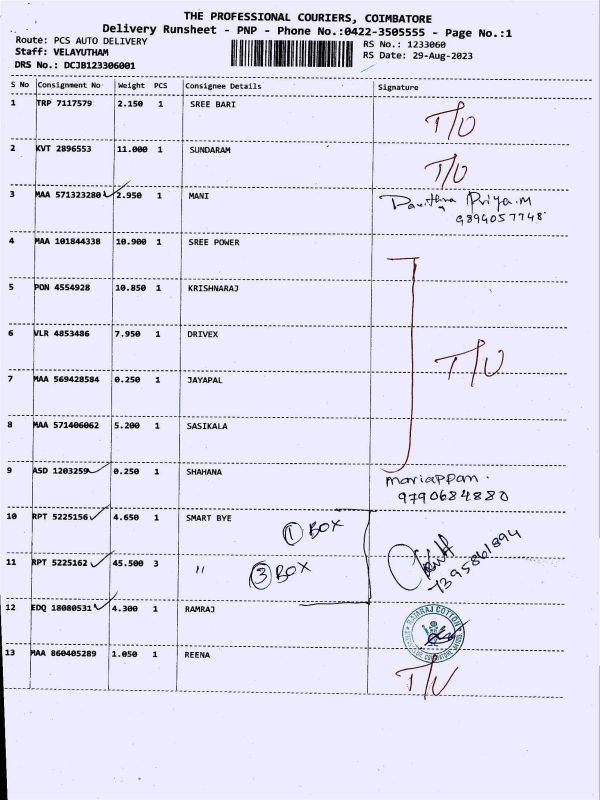 THE PROFESSIONAL COURIERS, COIMBATORE
Delivery Runsheet - PNP - Phone No.:0422-3505555 - Page No.:1
Route: PCS AUTO DELIVERY
Staff: VELAYUTHAM
DRS No.: DCJB123306001
RS No.: 1233060
RS Date: 29-Aug-2023
S No Consignment No Weight PCS Consignee Details Signature
1 TRP 7117579 2.150 1 SREE BARI T/U
2 KVT 2896553 11.000 1 SUNDARAM T/U
3 MAA 571323280 2.950 1 MANI Pavithra Priya.M
9894057748
4 MAA 101844338 10.900 1 SREE POWER
5 PON 4554928 10.850 1 KRISHNARAJ
6 VLR 4853486 7.950 1 DRIVEX T/U
7 MAA 569428584 0.250 1 JAYAPAL
8 MAA 571406062 5.200 1 SASIKALA
9 ASD 1203259 0.250 1 SHAHANA mariappan.
9790684880
10 RPT 5225156 4.650 1 SMART BYE 1 BOX
11 RPT 5225162 45.500 3 " 3 BOX 7395861894
12 EDQ 18080531 4.300 1 RAMRAJ RAMRAJ COTTON
13 MAA 860405289 1.050 1 REENA T/U